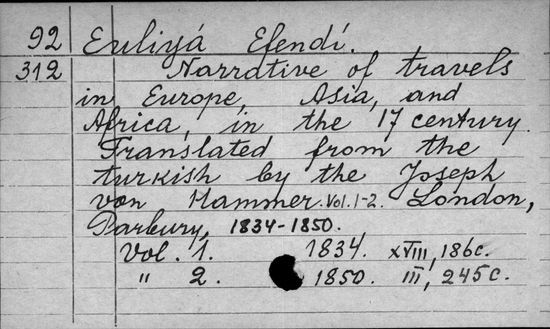 92 Euliyá Efendí.
312 Narrative of travels
in Europe, Asia, and
Africa, in the 17 century.
Translated from the
turkish by the Joseph
von Hammer. Vol. 1-2. London,
Parbury, 1834-1850.
Vol. 1. 1834. XVIII, 186c.
" 2. 1850. III, 245c.